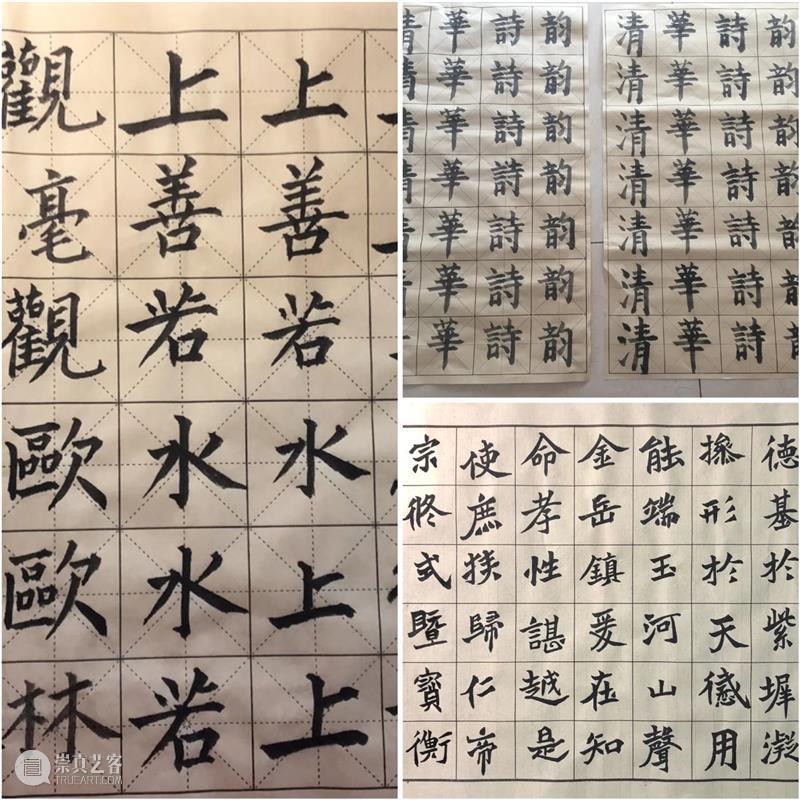 上善若水上上
上善若水水若
觀毫觀歐歐林
清華詩韵
清華詩韵
清華詩韵
清華詩韵
清華詩韵
清華詩韵
清華詩韵
清華詩韵
清華詩韵
清華詩韵
清華詩韵
清華詩韵
清華詩韵
清華詩韵
德基於紫墀凝
操形於天感用
能端玉河山聲
金岳鎮爰在知
命孝性諶越是
使庶族歸仁帝
宗修式暨寶衡
崇真艺客
TRUEART.COM